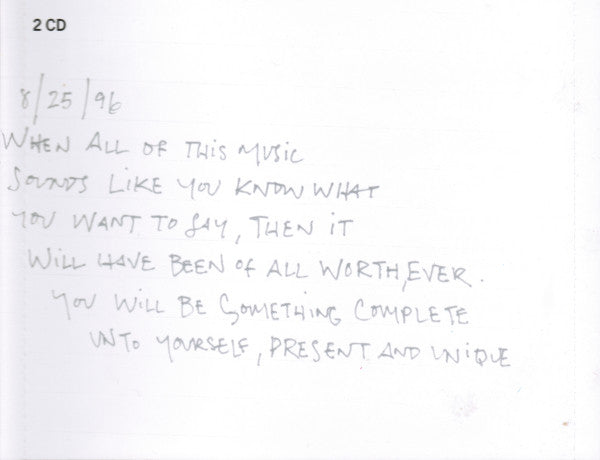 2 CD
8/25/96
WHEN ALL OF THIS MUSIC
SOUNDS LIKE YOU KNOW WHAT
YOU WANT TO SAY, THEN IT
WILL HAVE BEEN OF ALL WORTH, EVER.
YOU WILL BE SOMETHING COMPLETE
UNTO YOURSELF, PRESENT AND UNIQUE